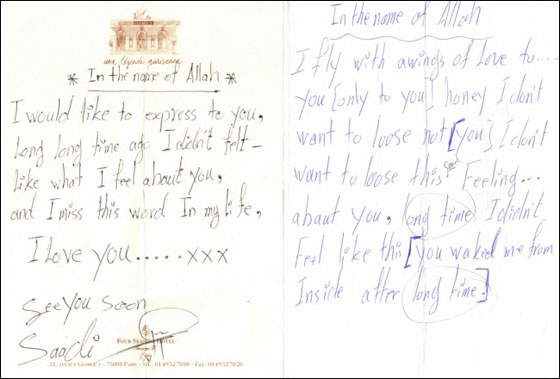 une légende parisienne
* In the name of Allah *
I would like to express to you,
Long long time ago I didn't felt –
like what I feel about you,
and I miss this word In my life,
I love you.....xxx
See you soon
Saadi
In the name of Allah
I fly with awings of love to....
you [only to you] honey I don't
want to loose not [you] I don't
want to loose this Feeling...
about you, long time I didn't
Feel like this [you waked me from
Inside after long time.]